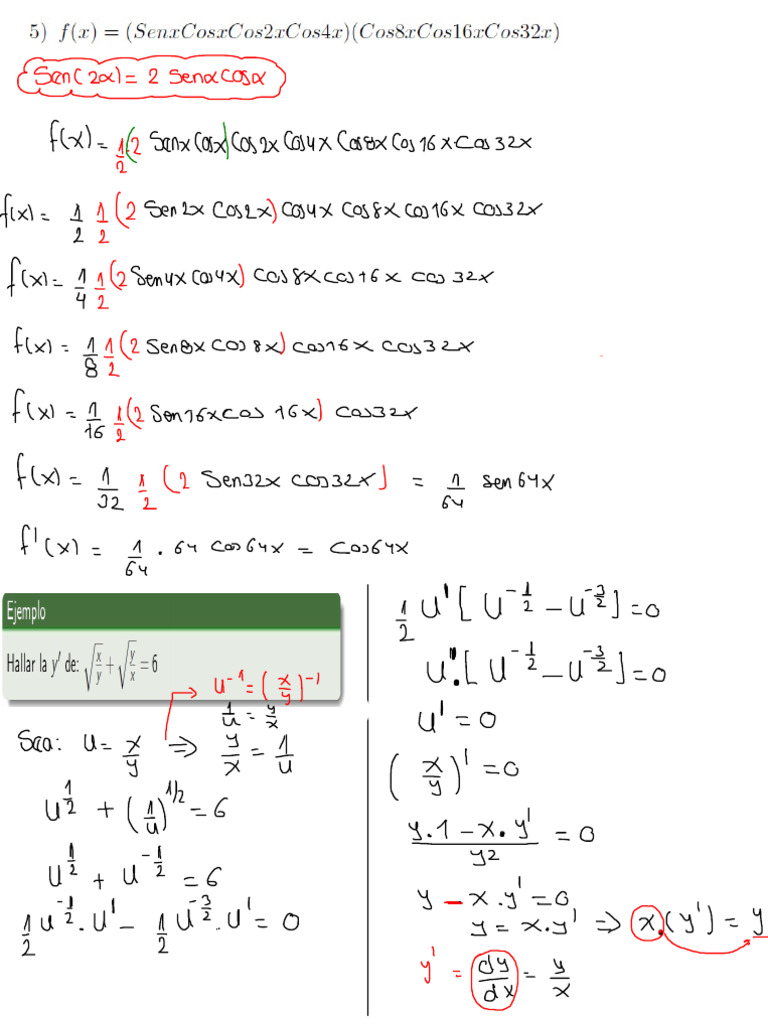 5) f(x) = (SenxCosxCos2xCos4x)(Cos8xCos16xCos32x)
Sen(2α) = 2 Senα Cosα
f(x) = 1/2 (2 Senx Cosx) Cos2x Cos4x Cos8x Cos16x Cos32x
f(x) = 1/2 1/2 (2 Sen2x Cos2x) Cos4x Cos8x Cos16x Cos32x
f(x) = 1/4 1/2 (2 Sen4x Cos4x) Cos8x Cos16x Cos32x
f(x) = 1/8 1/2 (2 Sen8x Cos8x) Cos16x Cos32x
f(x) = 1/16 1/2 (2 Sen16x Cos16x) Cos32x
f(x) = 1/32 1/2 (2 Sen32x Cos32x) = 1/64 Sen64x
f'(x) = 1/64 . 64 Cos64x = Cos64x
Ejemplo
Hallar la y' de: √(x/y) + √(y/x) = 6
u^-1 = (x/y)^-1
1/u = y/x
Sea: u = x/y ⇒ y/x = 1/u
u^1/2 + (1/u)^1/2 = 6
u^1/2 + u^-1/2 = 6
1/2 u^-1/2 . u' - 1/2 u^-3/2 . u' = 0
1/2 u' [u^-1/2 - u^-3/2] = 0
u' . [u^-1/2 - u^-3/2] = 0
u' = 0
(x/y)' = 0
(y.1 - x.y')/y2 = 0
y - x.y' = 0
y = x.y' ⇒ x.(y') = y
y' = dy/dx = y/x